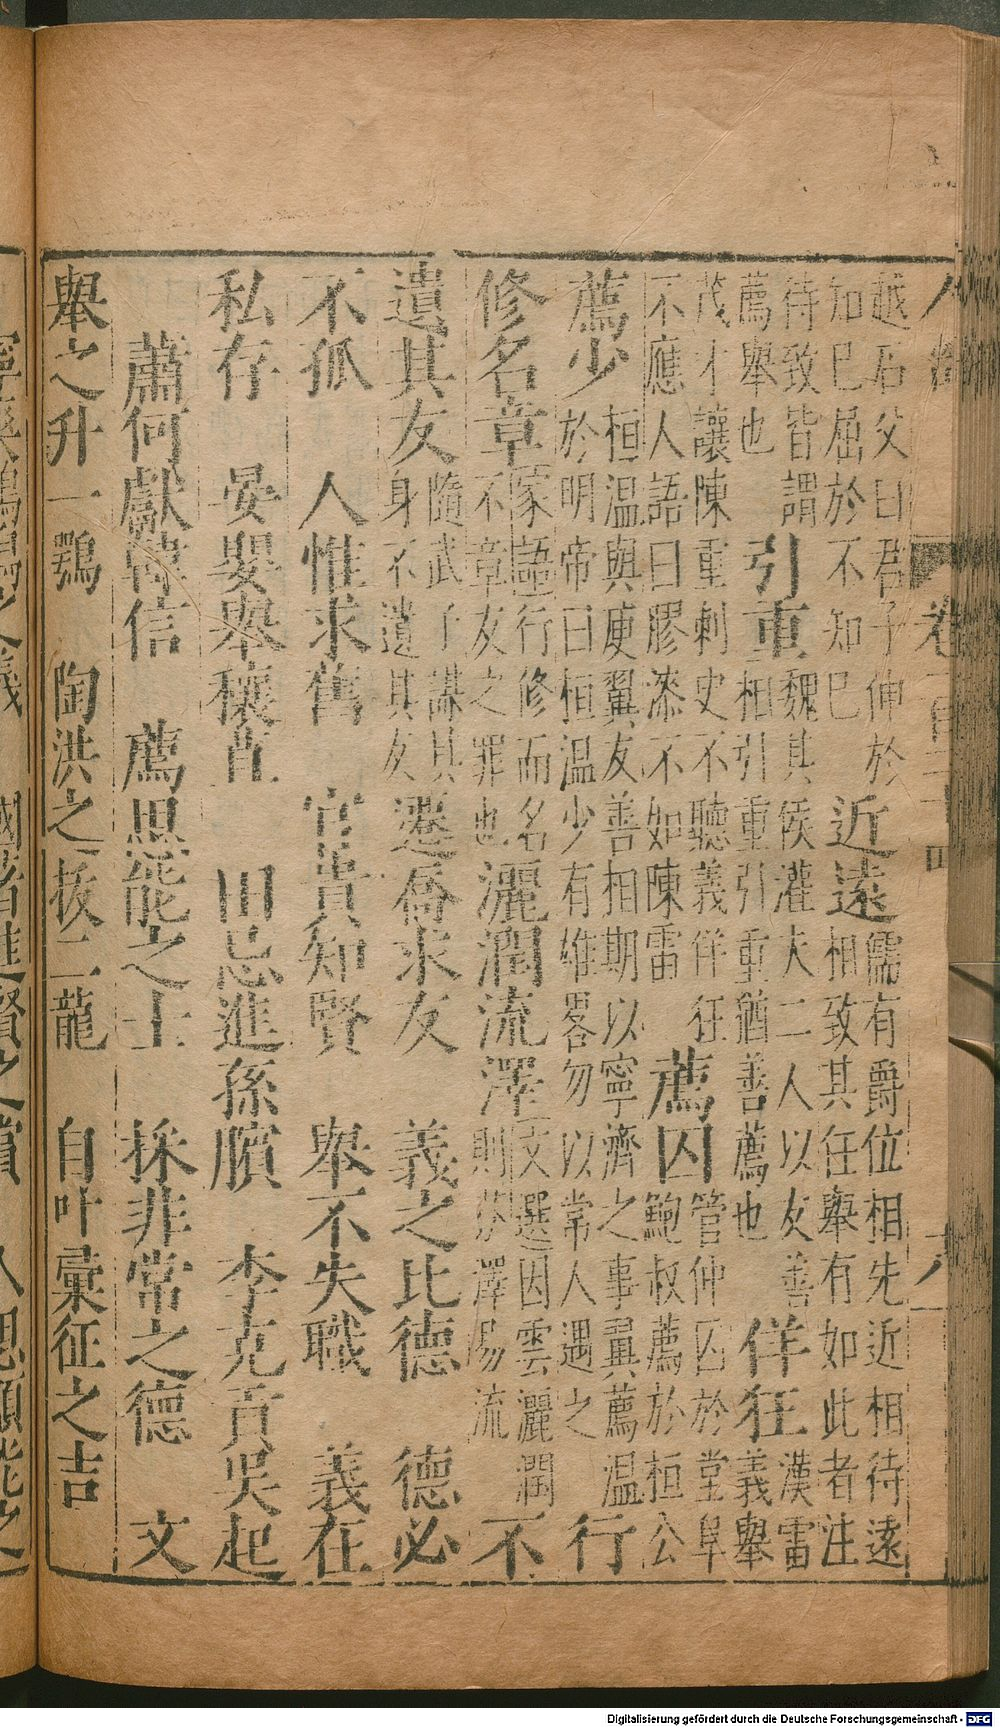 越石父曰君子伸於
加已屈於不知已
近遠
儒有爵位相先近相待遠
相致其任舉有如此者注
待致皆謂
薦舉也
引重
魏其侯灌夫二人以友善
相引重引重猶善薦也
佯狂
漢雷
義舉
茂才讓陳重刺史不聽義佯狂
不應人語曰膠漆不如陳雷
薦囚
管仲囚於堂阜
鮑叔薦於桓公
薦少
桓温與庾翼友善相期以寧濟之事翼薦温
於明帝曰桓温少有雄畧勿以常人遇之
行
修名章
家語行修而名
不章友之罪也
灑潤流澤
文選因雲灑潤
則芬澤易流
不
遺其友
隨武子謀其
身不遺其友
遷喬求友 義之比德 德必
不孤 人惟求舊 官貴知賢 舉不失職 義在
私存 晏嬰舉穰苴 田忌進孫臏 李克言吳起
蕭何獻韓信 薦思能之士 採非常之德 文
舉之升一鶚 陶洪之拔二龍 自叶彙征之吉
Digitalisierung gefördert durch die Deutsche Forschungsgemeinschaft - DFG